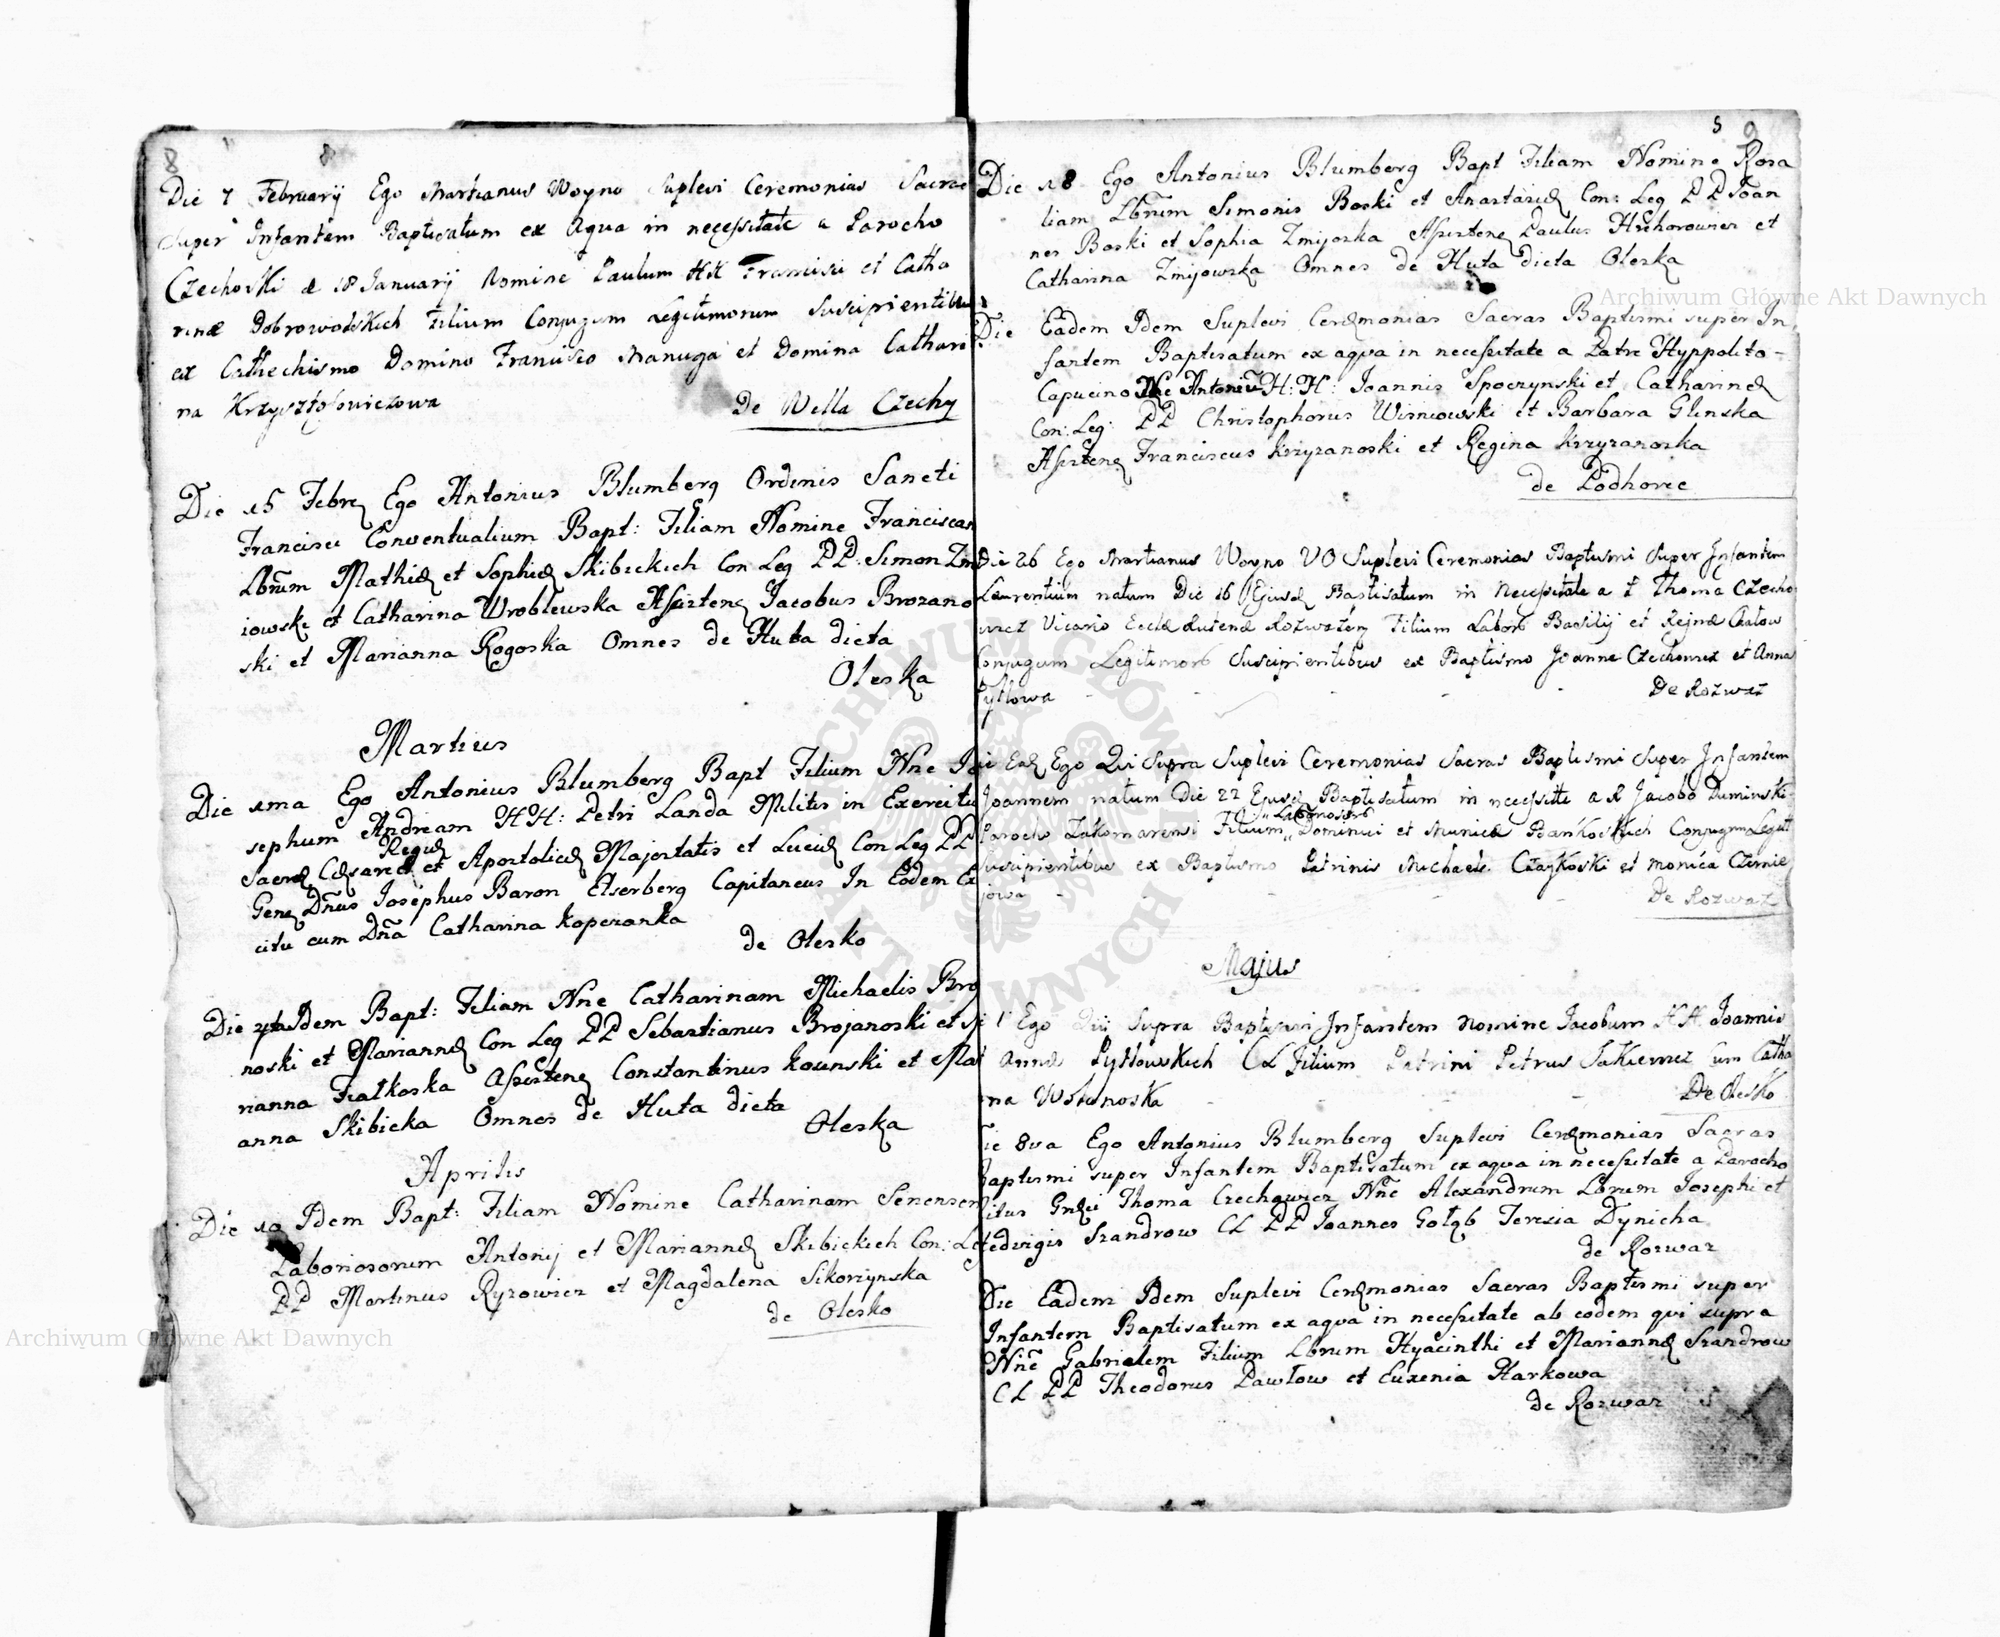 8
8
Die 7 Februarij Ego Martianus Woyno Suplevi Ceremonias Sacras
Super Infantem Baptisatum ex Aqua in necessitate a Parocho
Czechoski d 18 Januarij Nomine Paulum HH Francisci et Catha
rinæ Dobrowolskich Filium Conjugum Legitimorum Suscipientibus
ex Cathechismo Domino Francisco Manuga et Domina Cathari
na Krzysztofowiczowa
De Villa Czechy
Die 15 Febrę Ego Antonius Blumberg Ordinis Sancti
Francisci Conventualium Bapt: Filiam Nomine Franciscam
Lbrum Mathiæ et Sophiæ Skibickich Con Leg PP. Simon Zmi
iowski et Catharina Wroblewska Assistenę Jacobus Brozano
ski et Marianna Rogoska Omnes de Huta dicta
Oleska
Martius
Die 1ma Ego Antonius Blumberg Bapt Filium Nne Jo
sephum Andream HH: Petri Landa Militis in Exercitu
Sacræ Cæsareæ Regiæ et Apostolicæ Majestatis et Luciæ Con Leg PP
Genę Dnus Josephus Baron Elserberg Capitaneus In Eodem Ex
citu cum Dna Catharina Koperanka
de Olesko
Die Idem Bapt: Filiam Nne Catharinam Michaelis Bro
noski et Mariannæ Con Leg PP Sebastianus Brojanoski et
rianna Fialkoska Assistenę Constantinus Kosinski et Mari
anna Skibicka Omnes de Huta dicta
Oleska
Aprilis
Die 10 Idem Bapt: Filiam Nomine Catharinam Senensem
Laboriosorum Antonij et Mariannæ Skibickich Con: Leg
PP Martinus Ryzowicz et Magdalena Sikorzynska
de Olesko
5 9
Die 18 Ego Antonius Blumberg Bapt Filiam Nomine Rosa
liam Lbrum Simonis Boski et Anastasiæ Con: Leg PP Joan
nes Boski et Sophia Zmijoska Assistenę Paulus Hrehorowicz et
Catharina Zmijowska Omnes de Huta dicta Oleska
Die Eadem Idem Suplevi Ceræmonias Sacras Baptismi super In
fantem Baptisatum ex aqva in necessitate a Patre Hyppolito
Capucino Nne Antoniu H: H: Joannis Spoczynski et Catharinæ
Con: Leg: PP Christophorus Wisniowski et Barbara Glinska
Assistenę Franciscus Krzyzanoski et Regina Krzyzanoska
de Podhorce
Die 26 Ego Martianus Woyno VO Suplevi Ceremonias Baptismi Super Infantem
Laurentium natum Die 16 Ejusd Baptisatum in Necessitate a P Thoma Czecho
wicz Vicario Eccłæ Rutenæ Rozwazeń Filium Labor Basilij et Rejnæ Chatow
Conjugum Legitimor Suscipientibus ex Baptismo Joanne Czechowicz et Anna
Pyłłowa
De Rozwaz
Die Ead Ego Qui Supra Suplevi Ceremonias Sacras Baptismi Super Infantem
Joannem natum Die 22 Ejusd Baptisatum in necessitte a R Jacobo Duminski
Parocho Zakomarensi Filium Laboriosor Dominici et Municæ Bankoskich Conjugum Legitt
Suscipientibus ex Baptismo Patrinis Michaele Czaykoski et Monica Czernie
jowa
De Rozwaz
Majus
1 Ego Qui Supra Baptisavi Infantem Nomine Jacobum HH Joannis
Annæ Pyłłowskich CL Filium Patrini Petrus Jakiewicz Cum Catha
rina Wołonoska
De Olesko
Die 8va Ego Antonius Blumberg Suplevi Ceræmonias Sacras
Baptismi super Infantem Baptisatum ex aqva in necessitate a Parocho
Ritus Græci Thoma Czechowicz Nne Alexandrum Lbrum Josephi et
Hedvigis Szandrow CL PP Joannes Gołąb Teresia Dynicha
de Rozwaz
Die Eadem Idem Suplevi Ceræmonias Sacras Baptismi super
Infantem Baptisatum ex aqva in necessitate ab eodem qvi supra
Nne Gabrielem Filium Lbrum Hyacinthi et Mariannæ Szandrow
CL PP Theodorus Pawłow et Euxenia Harkowa
de Rozwaz
Archiwum Główne Akt Dawnych
Archiwum Główne Akt Dawnych
ARCHIWUM GŁÓWNE AKT DAWNYCH